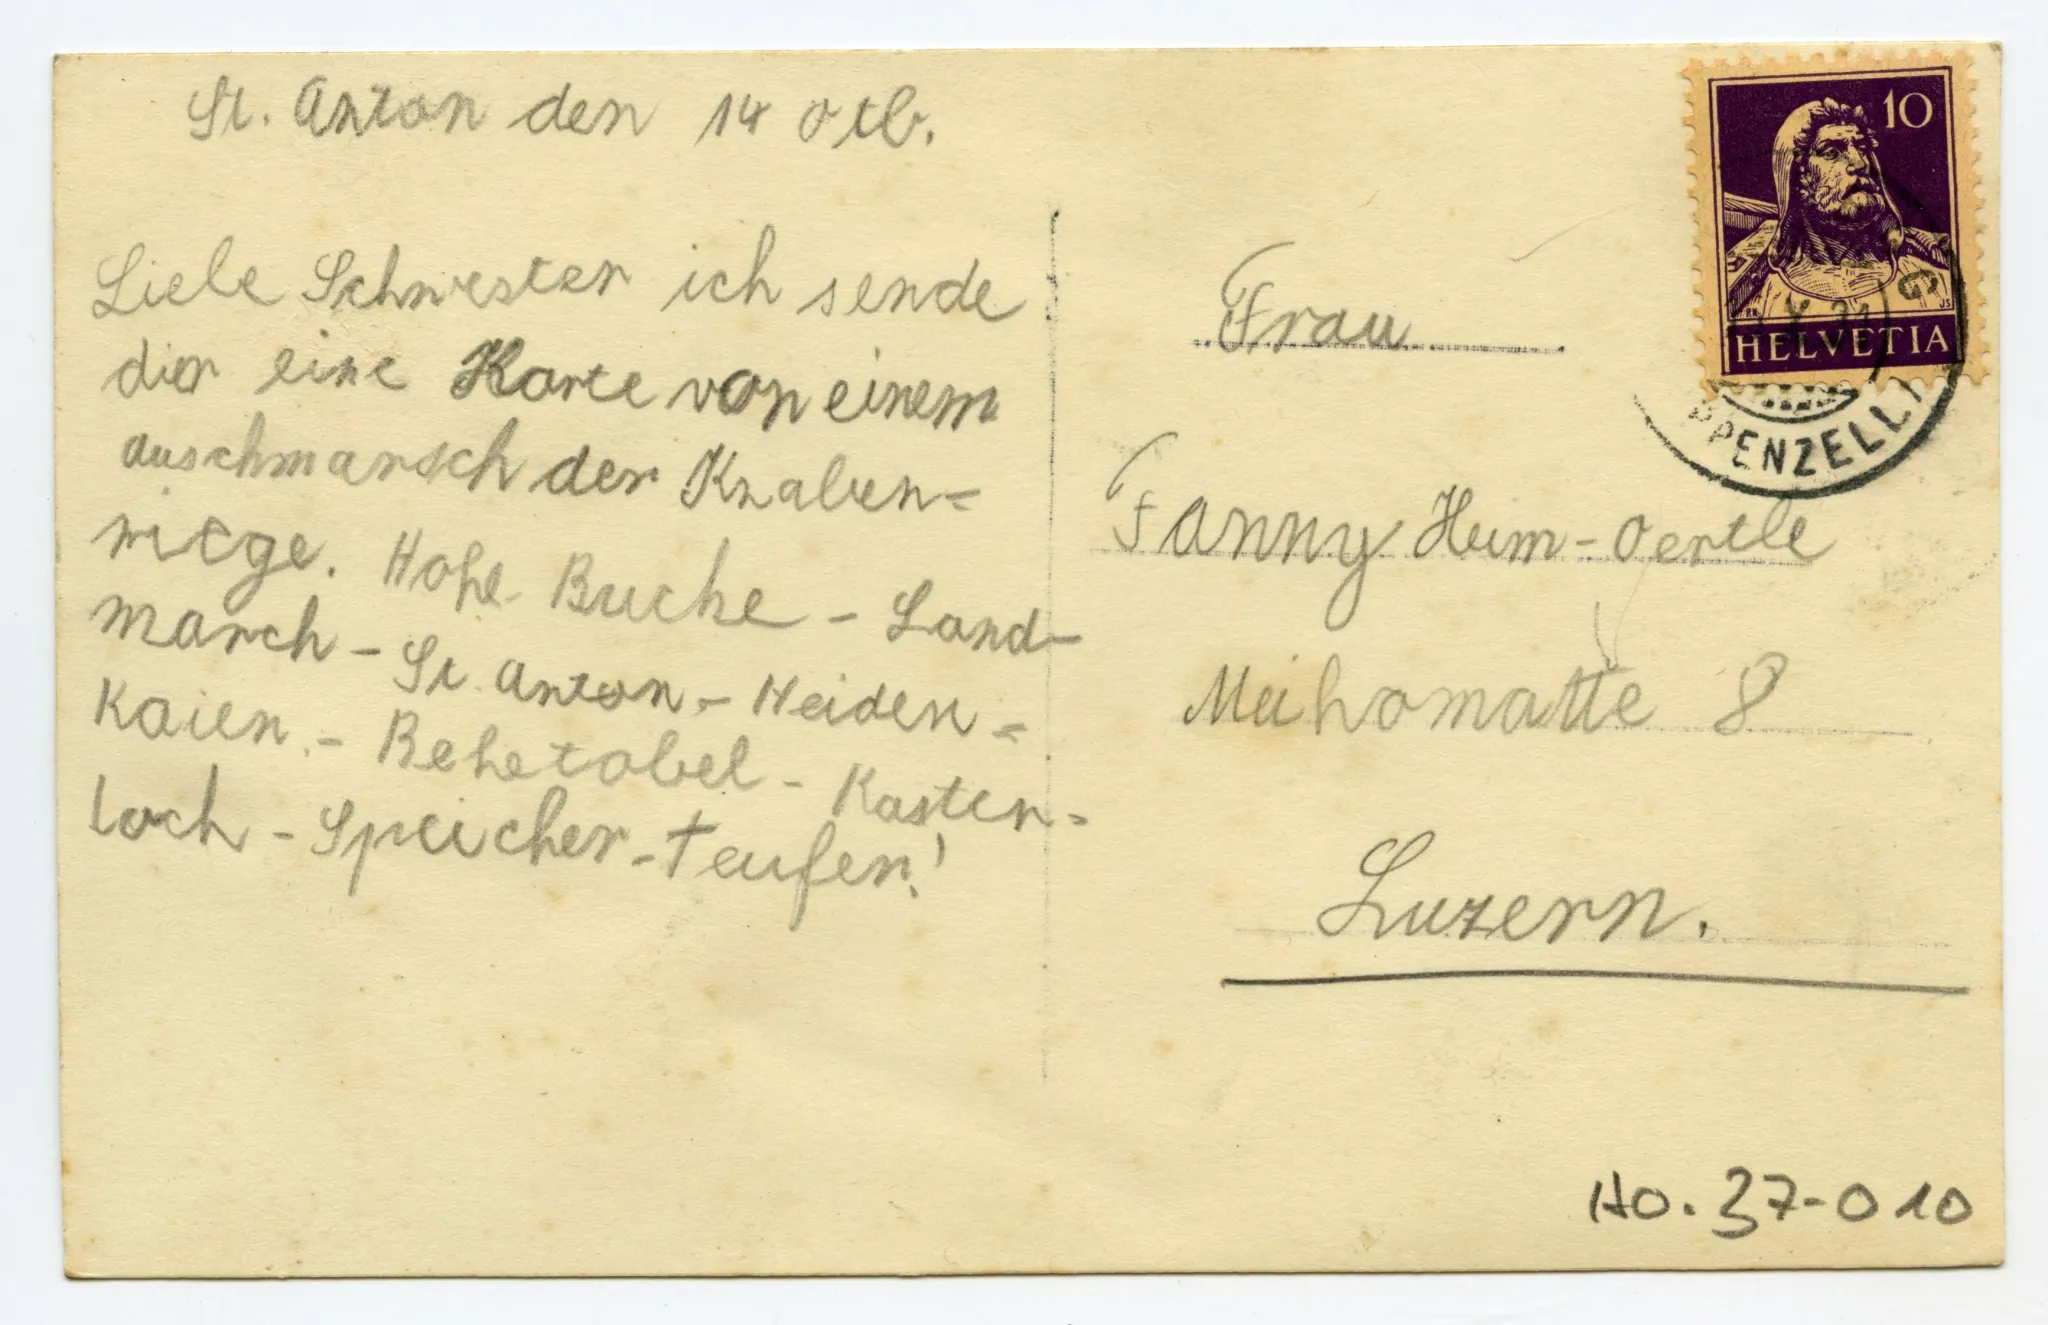 St. Anton den 14 Otb.
Liebe Schwester ich sende
dir eine Karte von einem
auschmarsch der Knaben=
riege. Hohe Buche - Land-
march - St. Anton - Heiden =
Kaien. - Rehetobel - Kasten=
loch - Speicher - Teufen!
10
HELVETIA
PPENZELL
Frau
Fanny Hum-Oertle
Meihomatte 8
Luzern.
HO. 37-010